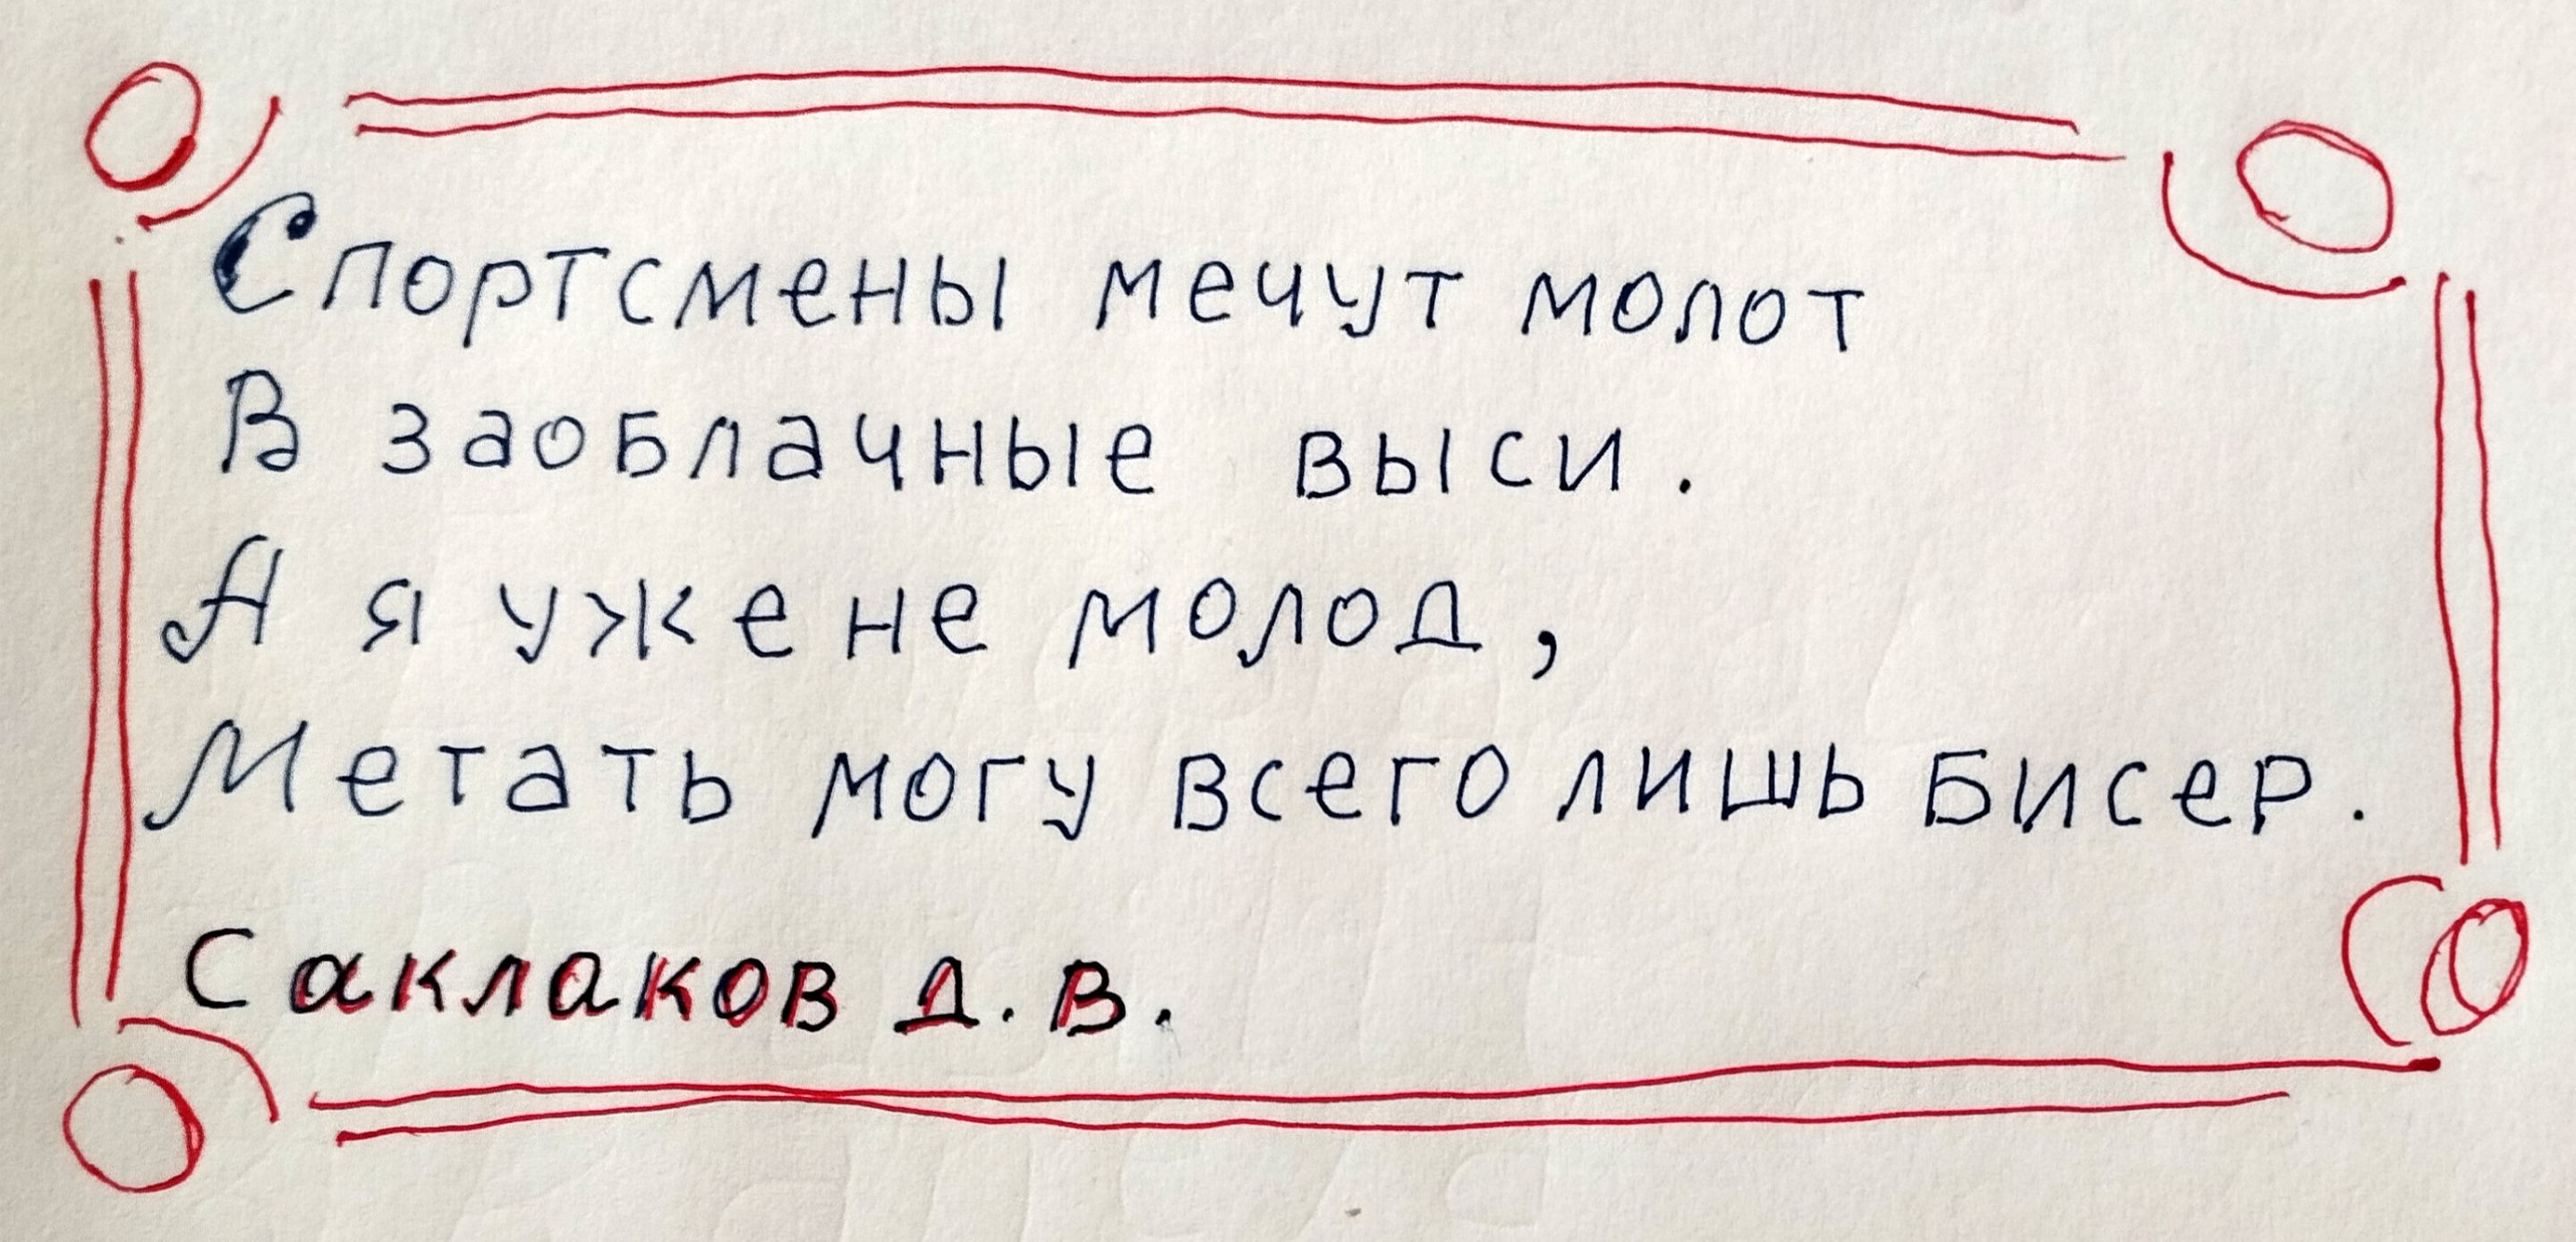 Спортсмены мечут молот
В заоблачные выси.
А я уже не молод,
Метать могу всего лишь бисер.
Саклаков Д. В.